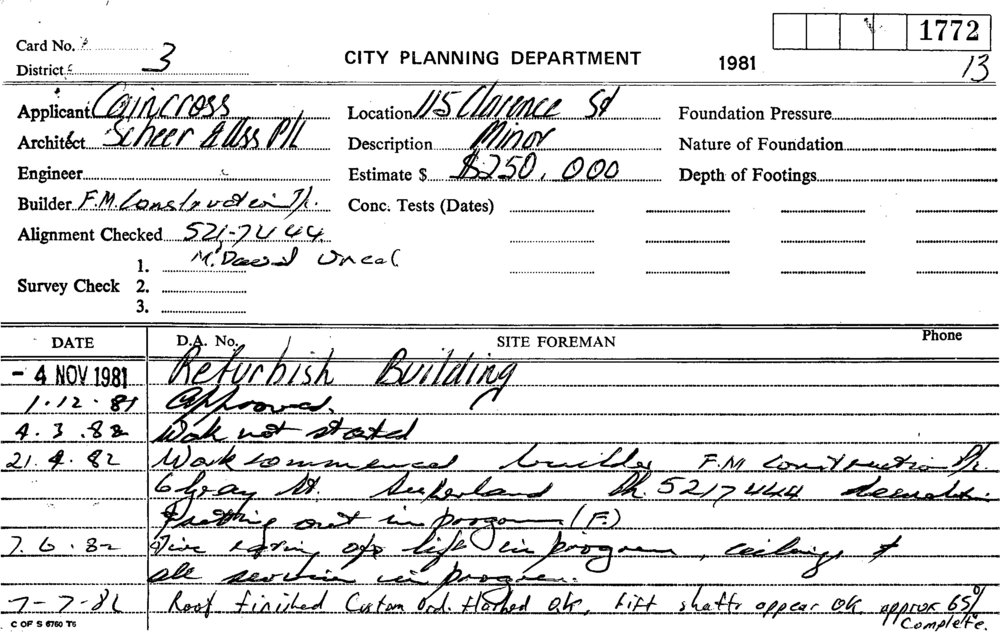 1772
Card No. 3
District
CITY PLANNING DEPARTMENT
1981
13
Applicant Caincross
Location 115 Clarence St
Foundation Pressure
Architect Scheer & Ass P/L
Description Minor
Nature of Foundation
Engineer
Estimate $ $250,000
Depth of Footings
Builder F.M. Construction P/L.
Conc. Tests (Dates)
Alignment Checked 521-7444
1. Mr David
Survey Check 2.
3.
DATE D.A. No. SITE FOREMAN Phone
- 4 NOV 1981 Refurbish Building
1.12.81 Approved.
4.3.82 Work not started
21.4.82 Work commenced builder F.M Construction P/L
6 Gray St. Sutherland Ph. 5217444
out in (F.)
7.6.82 Fire o/p lift in progress, ceilings &
all services in progress.
7-7-82 Roof finished Custom Ord. flashed OK, lift shafts appear OK approx 65%
Complete.
C OF S 6760 T6